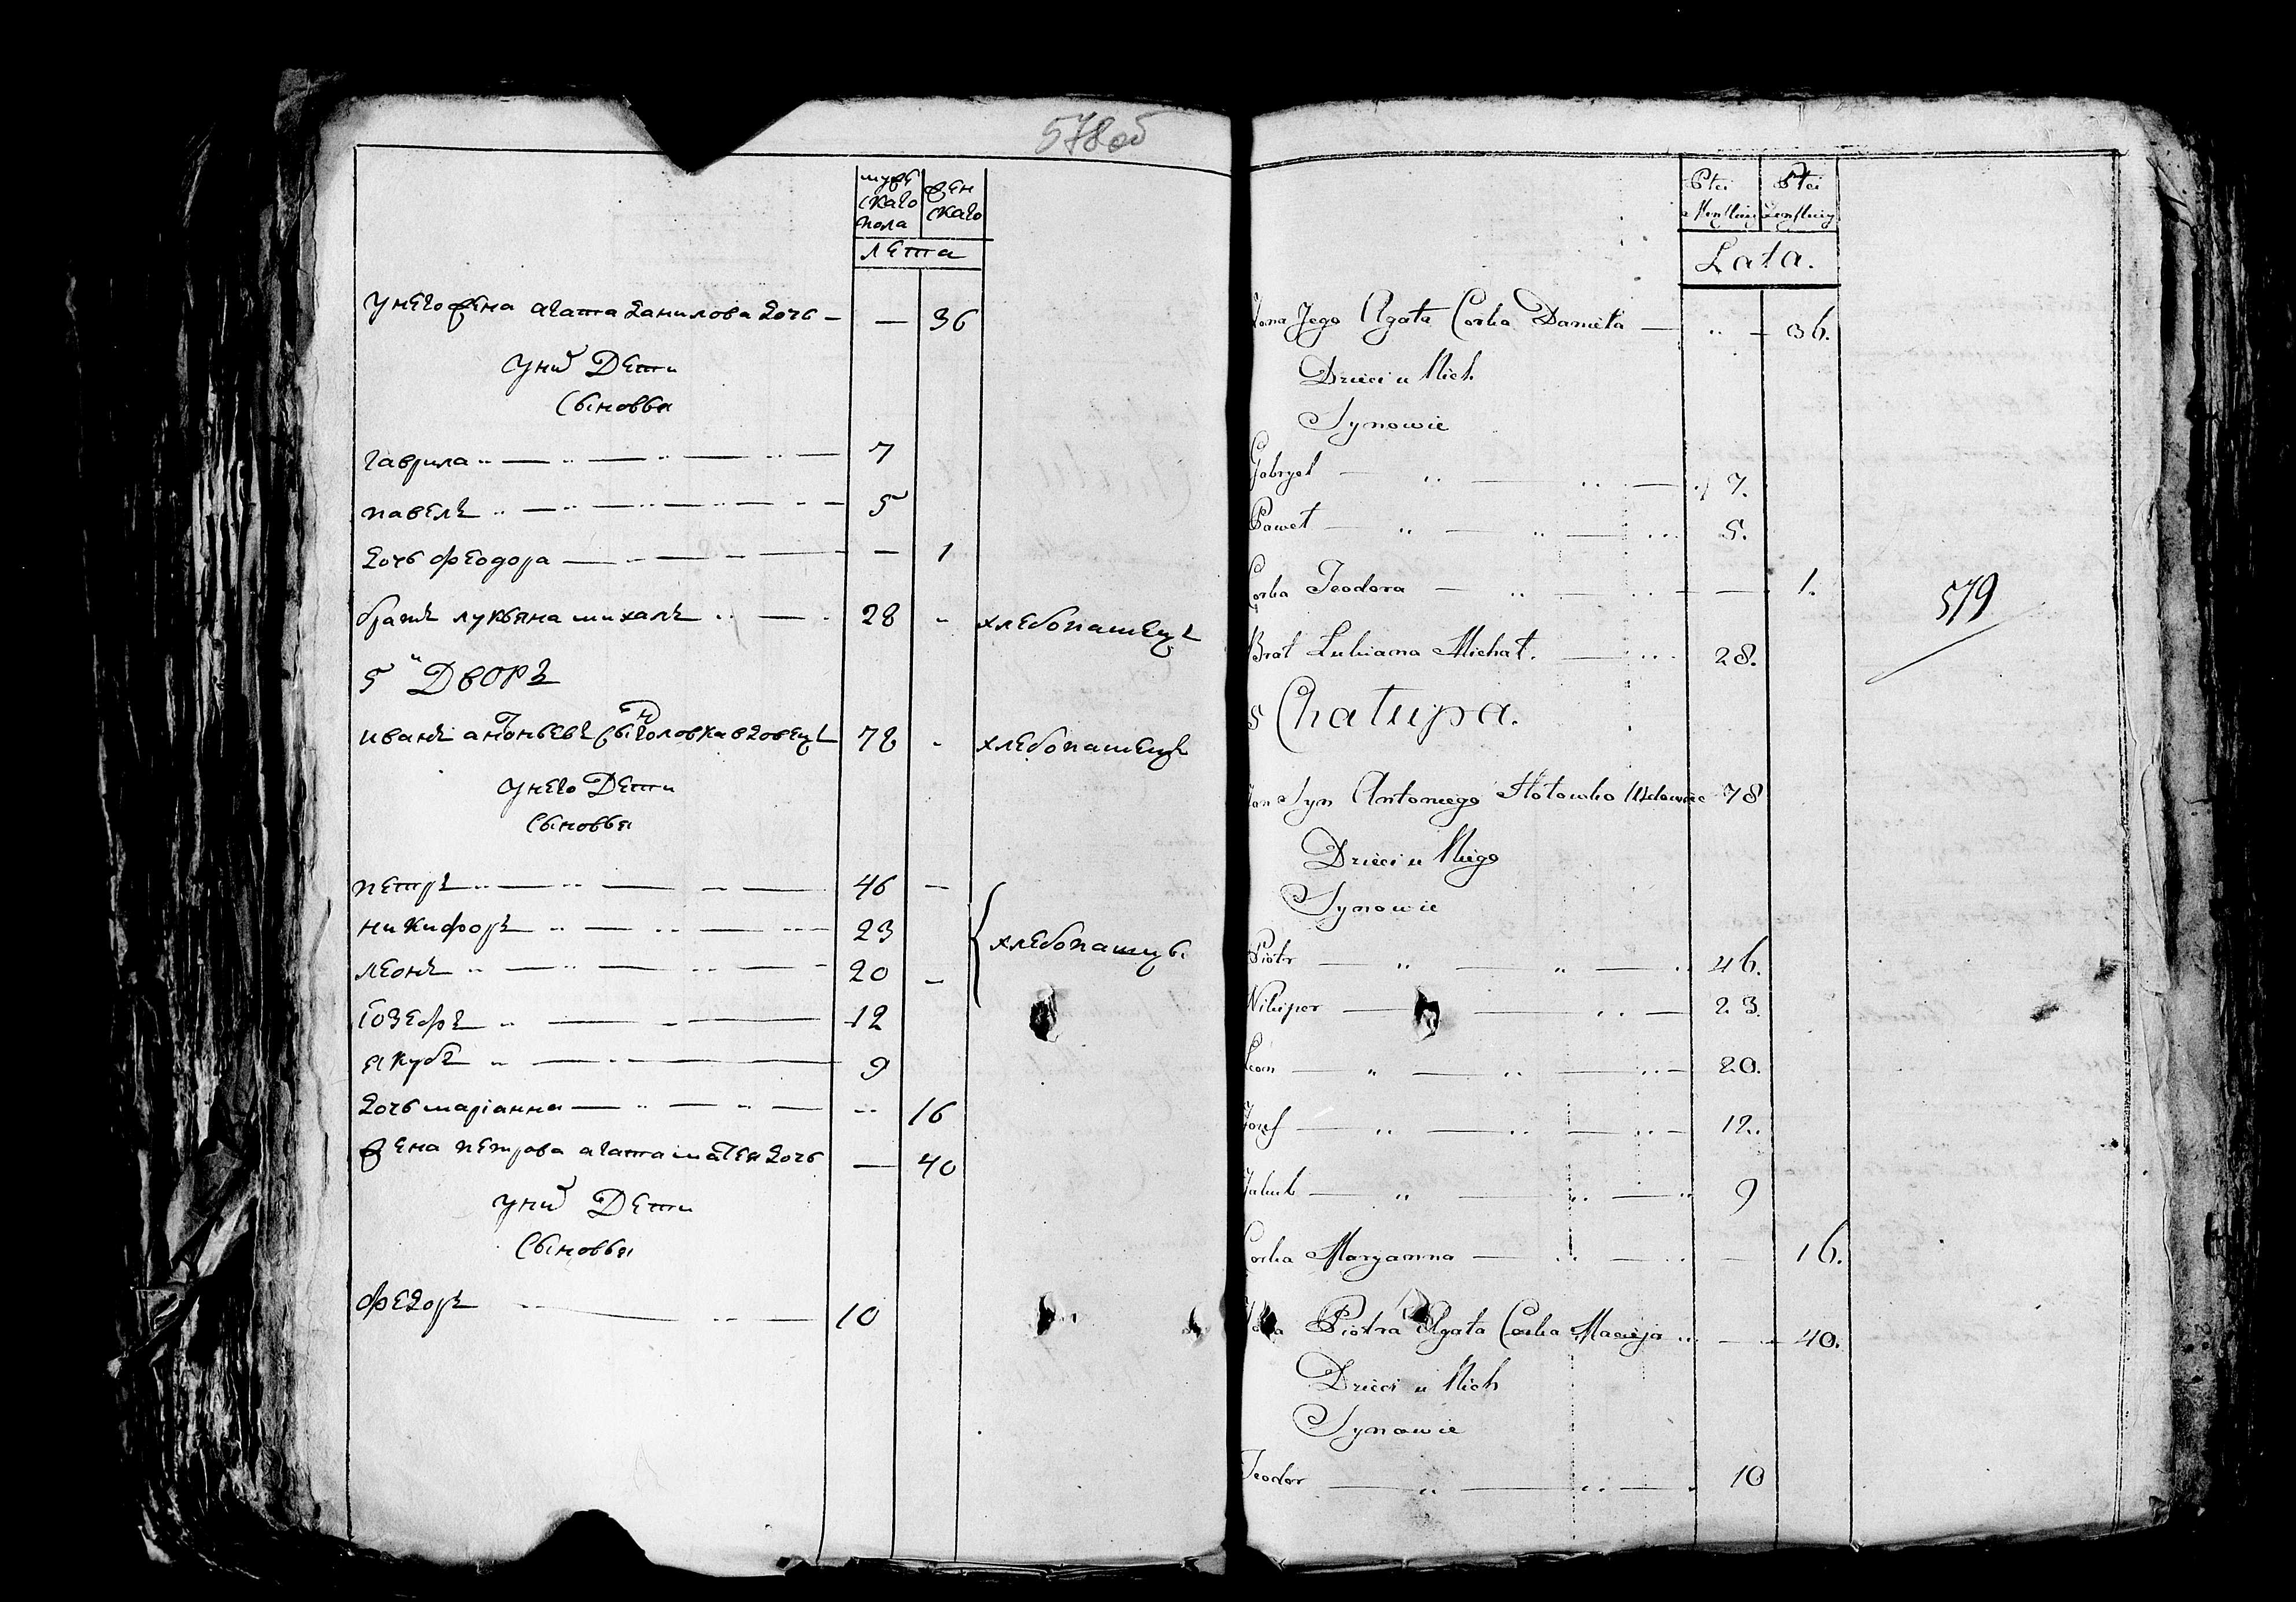 578об
мужескаго пола
женскаго
лета
у него жена агата данилова дочь — — 36
у них Дети
Сыновья
гаврила 7
павелъ 5
дочь феодора — 1
братъ лукьяна михалъ 28 хлебопашецъ
5й ДВОРЪ
иванъ антоньевъ сынъ головка вдовецъ 78 хлебопашецъ
у него Дети
Сыновья
петръ 46 —
никифоръ 23
хлебопашцы
леонъ 20 —
іозефъ 12
якубъ 9
дочь маріанна 16
жена петрова агата матея дочь — 40
у них Дети
Сыновья
федоръ 10
Płci Męskiey
Płci Żeńskiey
Lata.
Żona Jego Agata Corka Daniela — 36.
Dzieci u Nich
Synowie
Gabryel 7.
Paweł 5.
Corka Teodora — 1.
579
Brat Lukiana Michał. 28.
5 Chałupa.
Jan Syn Antoniego Hołowko Wdowiec 78
Dzieci u Niego
Synowie
Piotr 46.
Nikiper 23.
Leon 20.
Jozef 12.
Jakub 9
Corka Maryanna — 16.
Żona Piotra Agata Corka Macieja — 40.
Dzieci u Nich
Synowie
Teodor 10